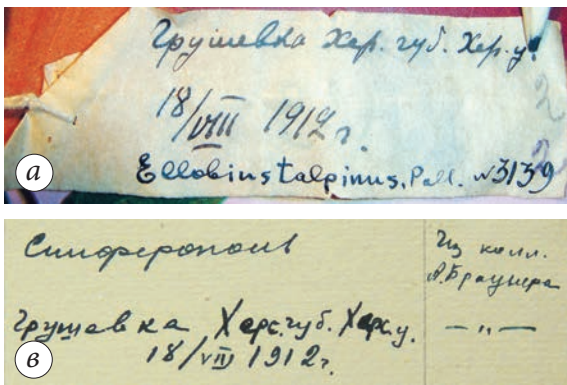 Грушевка Хер. губ. Хер. у.
18/VIII 1912 г.
Ellobius talpinus, Pall. №3139
а
Симферополь
Из колл.
А. Браунера
Грушевка Херс. губ. Херс. у. — „ —
18/VIII 1912 г.
в